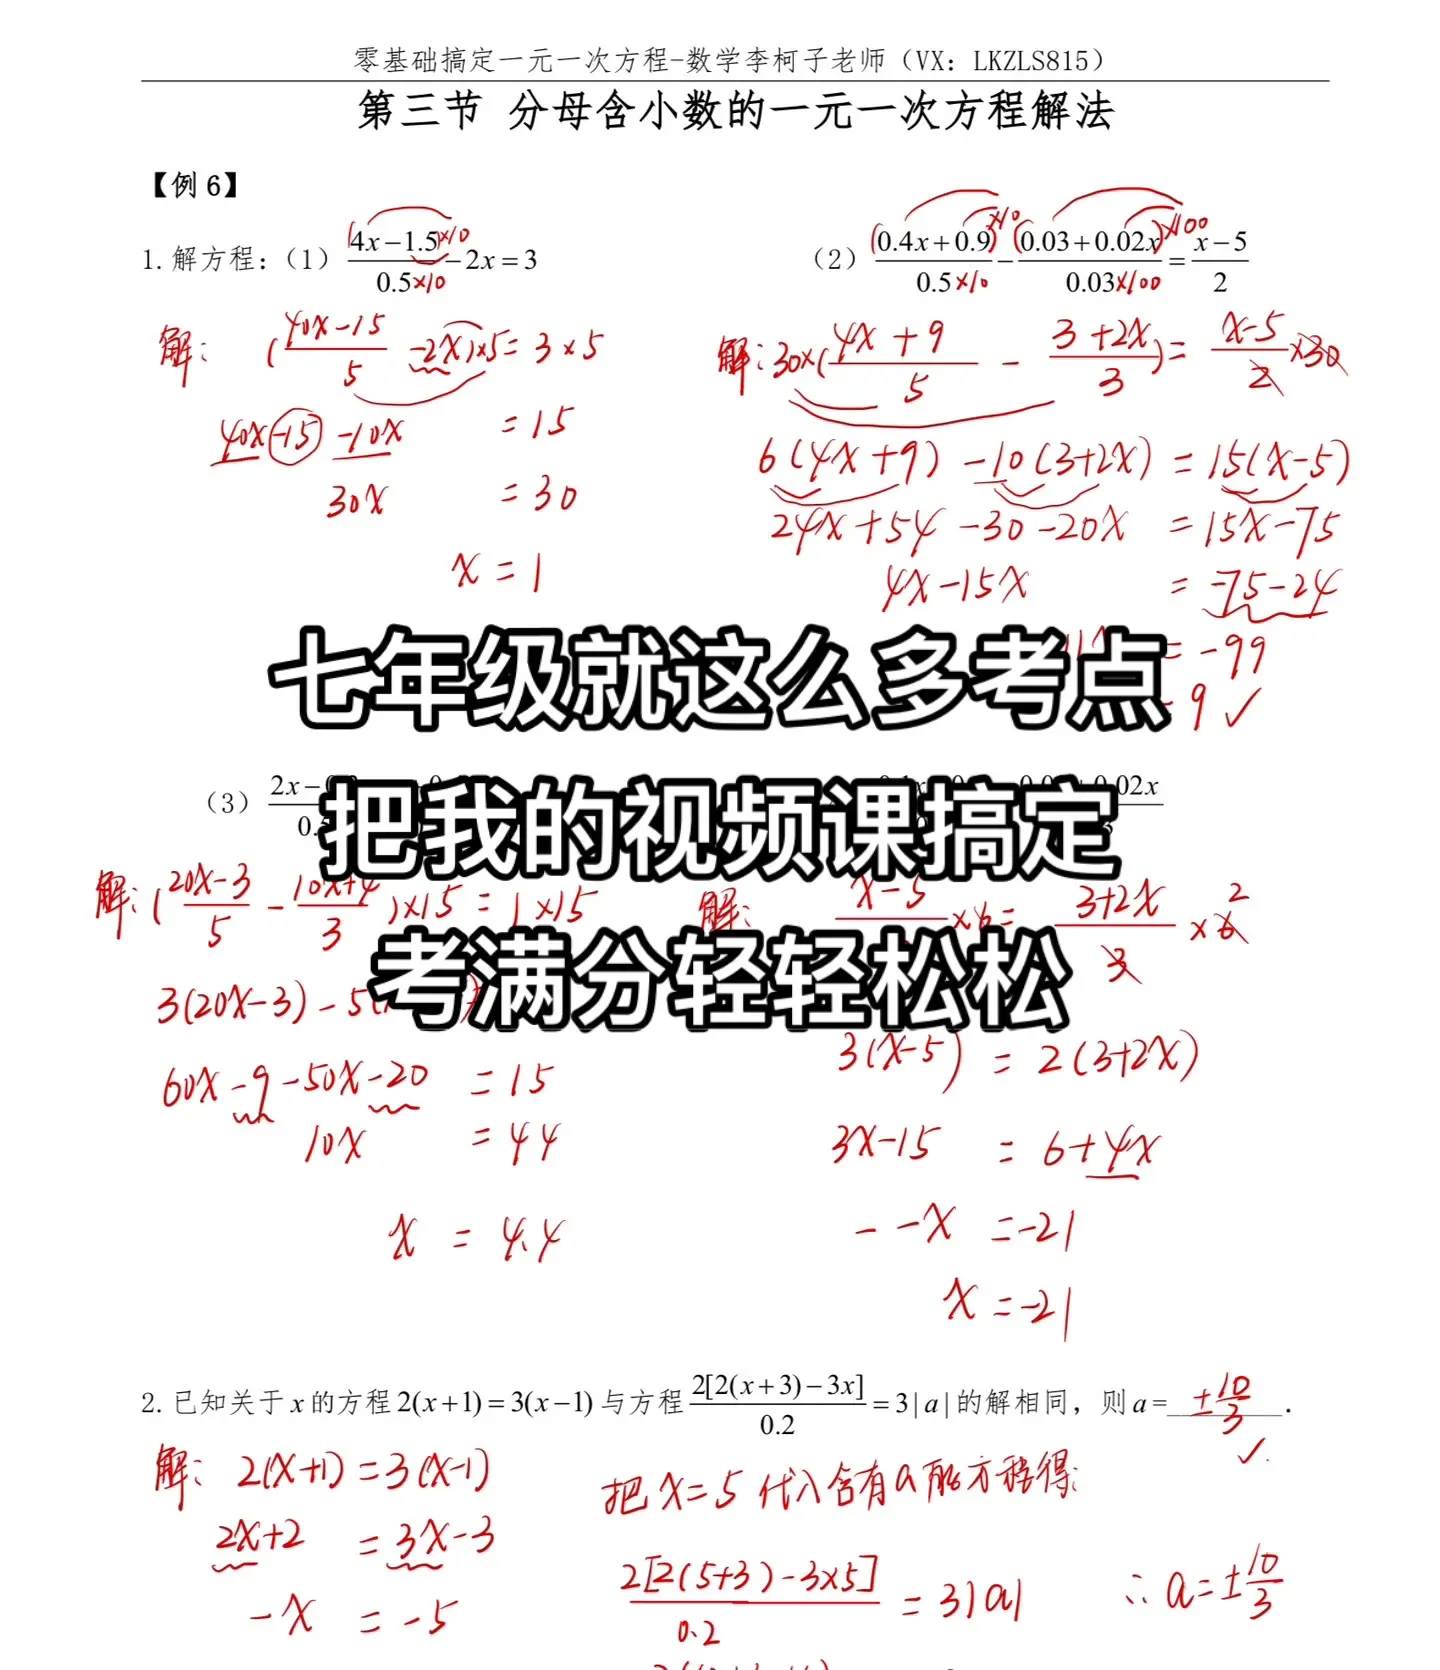 零基础搞定一元一次方程-数学李柯子老师（VX：LKZLS815）
第三节 分母含小数的一元一次方程解法
【例 6】
1.解方程：（1） (4x－1.5)×10 / 0.5×10 －2x＝3
（2） (0.4x＋0.9)×10 / 0.5×10 － (0.03＋0.02x)×100 / 0.03×100 ＝ x－5 / 2
解：( 40x－15 / 5 －2x)×5＝3×5
40x－15－10x ＝15
30x ＝30
x＝1
解：30×( 4x＋9 / 5 － 3＋2x / 3 )＝ x－5 / 2 ×30
6(4x＋9)－10(3＋2x)＝15(x－5)
24x＋54－30－20x ＝15x－75
4x－15x ＝－75－24
＝－99
9 ✓
七年级就这么多考点
把我的视频课搞定
考满分轻轻松松
（3） 2x－
02x
解：( 20x－3 / 5 － 10x＋4 / 3 )×15＝1×15
3(20x－3)－5(
60x－9－50x－20 ＝15
10x ＝44
x ＝4.4
解： x－5 ×6＝ 3＋2x / 3 ×6 2
3(x－5)＝2(3＋2x)
3x－15 ＝6＋4x
－－x ＝－21
x ＝－21
2.已知关于 x 的方程 2(x＋1)＝3(x－1) 与方程 2[2(x＋3)－3x] / 0.2 ＝3|a| 的解相同，则 a＝ ±10/3 ． ✓
解：2(x＋1)＝3(x－1)
2x＋2 ＝3x－3
－x ＝－5
把 x＝5 代入含有a的方程得：
2[2(5＋3)－3×5] / 0.2 ＝3|a|
∴a＝±10/3